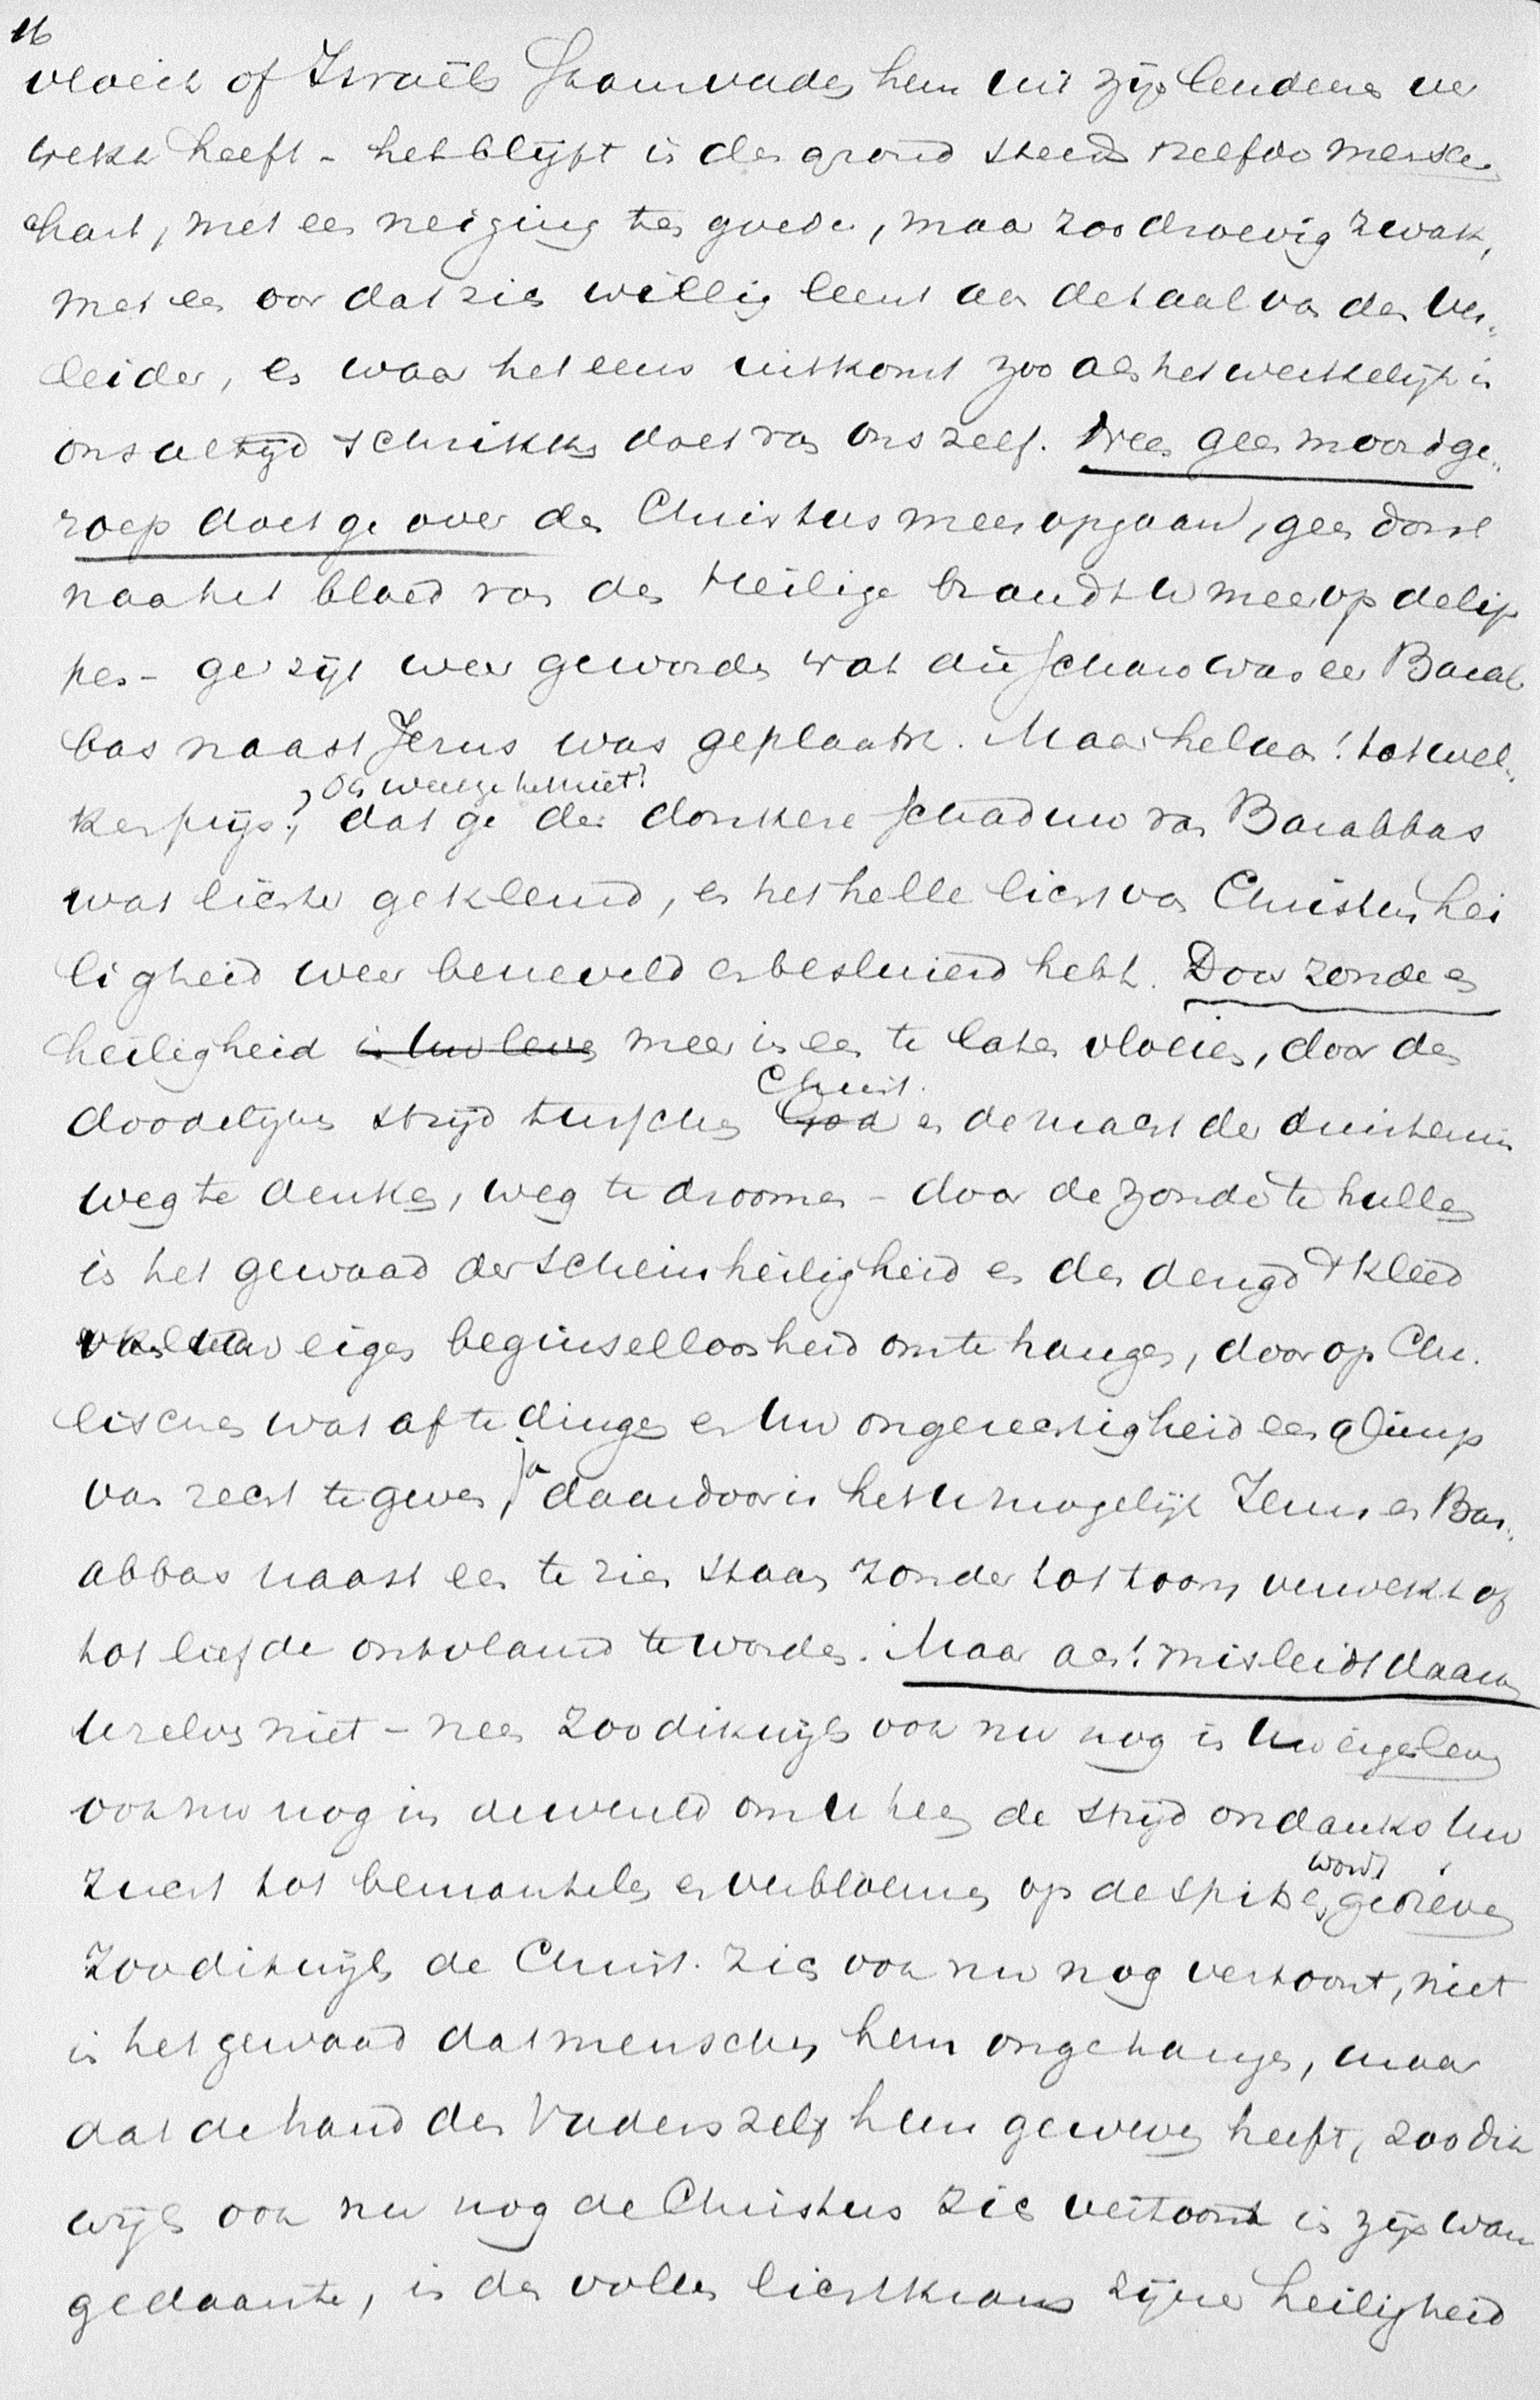 16
vloeit of Israëls stamvader hem uit zijn lendenen ver
wekt heeft - het blijft in den grond steeds 'tzelfde menschen
hart, met een neiging ten goede, maar zoo droevig zwak,
met een oor dat zich willig leent aan de taal van den Ver-
leider, en waar het eens uitkomt zoo als het werkelijk is
ons altijd schrikken doet van ons zelf. Neen geen moordge-
roep doet ge over den Christus meer opgaan, geen dorst
naar het bloed van den Heilige brandt U meer op de lip
pen - ge zijt weer geworden wat die schare was eer Barab
bas naast Jezus was geplaatst. Maar helaas! tot wel-
ken prijs?, Och weet ge het niet? dat ge de donkere schaduw van Barabbas
wat lichter gekleurd, en het helle licht van Christus hei
ligheid weer beneveld en besluierd hebt. Door zonde en
heiligheid in Uw leven meer in een te laten vloeien, door den
doodelijken strijd tusschen God Christ. en de macht der duisternis
weg te denken, weg te droomen - door de zonde te hullen
in het gewaad der schijnheiligheid en der deugd 't kleed
van Uw eigen beginselloosheid om te hangen, door op Chr.
eischen wat af te dingen en Uw ongerechtigheid een glimp
van recht te geven, ja daardoor is het U mogelijk Jezus en Bar-
abbas naast een te zien staan zonder tot toorn verwekt of
tot liefde ontvlamd te worden. Maar ach! misleidt daarom
Uzelven niet - neen zoo dikwijls ook nu nog in Uw eigen leven
ook nu nog in de wereld om U heen de strijd ondanks Uw
zucht tot bemantelen en verbloemen op de spits wordt gedreven
Zoo dikwijls de Christ. zich ook nu nog vertoont, niet
in het gewaad dat menschen hem omgehangen, maar
dat de hand des Vaders zelf hem geweven heeft, zoo dik
wijls ook nu nog de Christus zich vertoont in zijn ware
gedaante, in den vollen lichtkrans zijner heiligheid